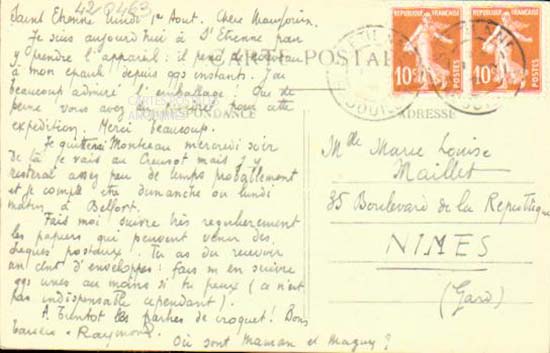 42 0463
Saint Etienne lundi 1er Aout. Chère
Je suis aujourd'hui à St Etienne pour
y prendre l'appareil : il pend de nouveau
à mon epaul depuis qqs instants. J'ai
beaucoup admiré l'emballage : Que de
peine vous avez du prendre pour cette
expédition. Merci beaucoup.
Je quitterai Montceau mercredi soir
De là je vais au Creusot mais j'y
resterai assez peu de temps probablement
et je compte etre dimanche ou lundi
matin à Belfort.
Fais moi suivre très regulierement
les papiers qui peuvent venir des
cheques postaux. Tu as du recevoir
un cent d'enveloppes : fais m'en suivre
qqs unes au moins si tu peux (ce n'est
pas indispensable cependant).
A bientot les parties de croquet ! Bons
baisers. Raymond.
Où sont Maman et Maguy ?
CARTE POSTALE
CORRESPONDANCE
ADRESSE
REPUBLIQUE FRANÇAISE
10c
POSTES
REPUBLIQUE FRANÇAISE
10c
POSTES
Mlle Marie Louise
Maillet
85 Boulevard de la République
NIMES
(Gard)